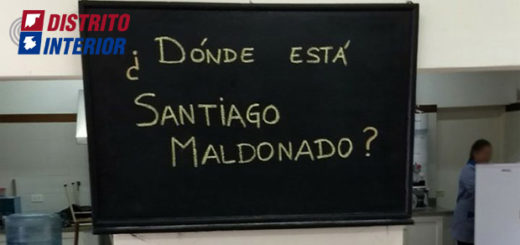 DISTRITO
INTERIOR
¿DÓNDE ESTÁ
SANTIAGO
MALDONADO?